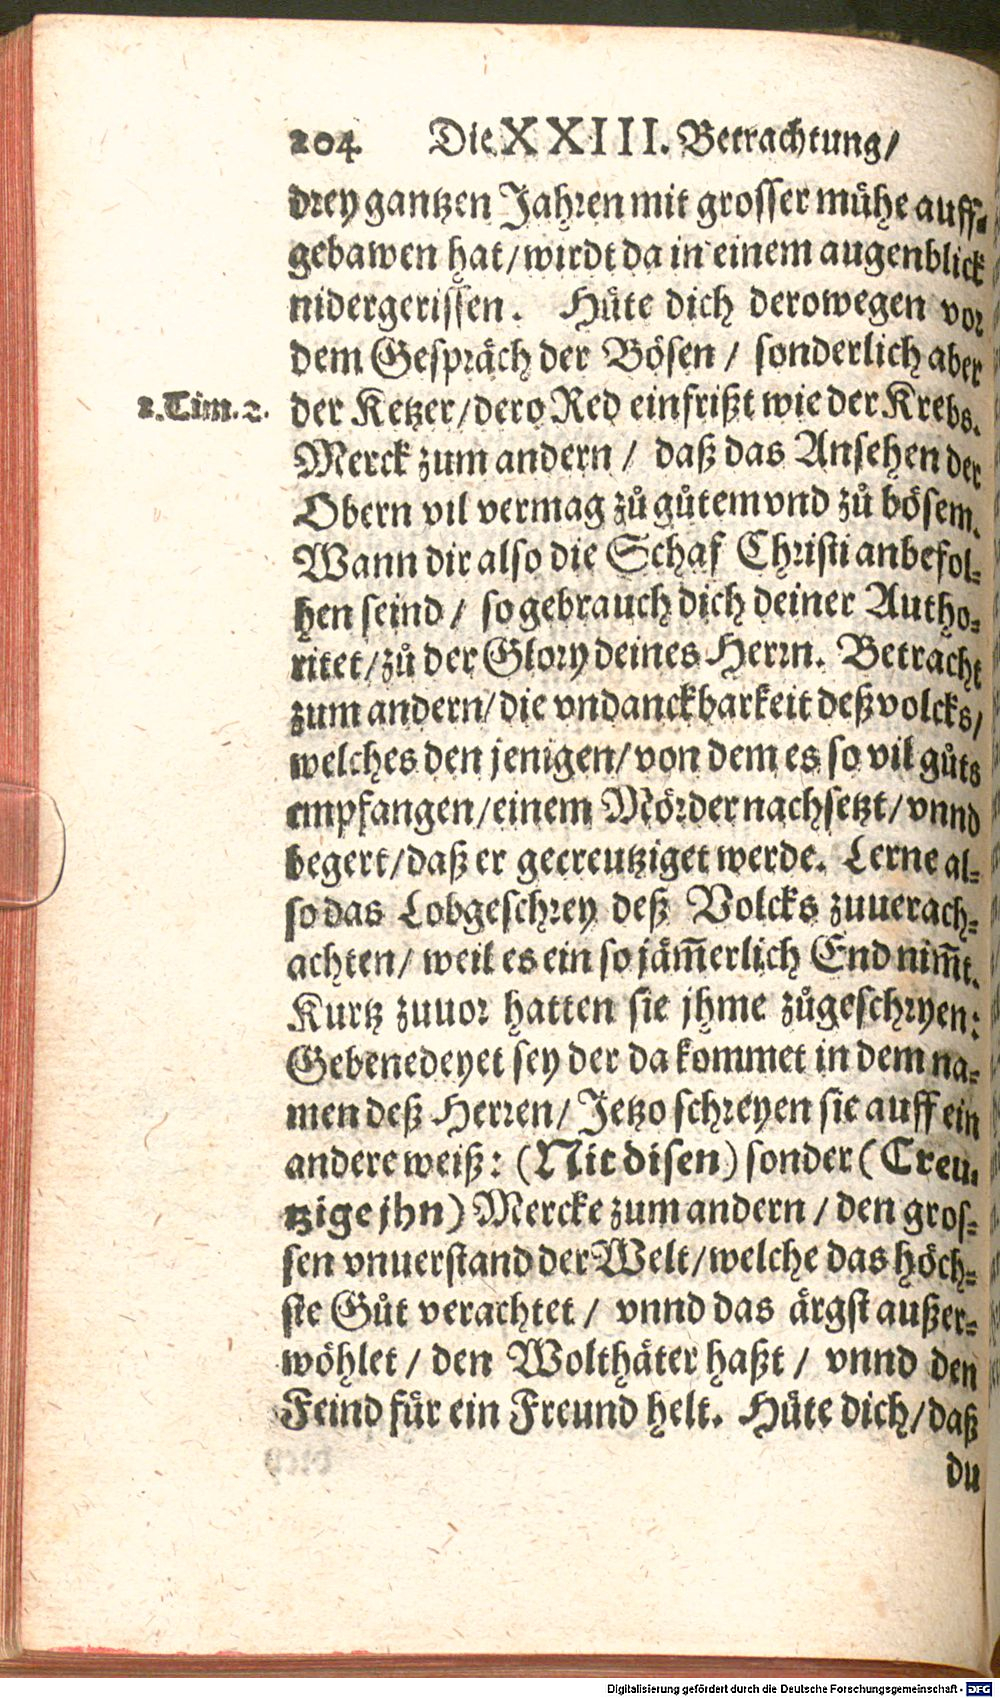 204 Die XXIII. Betrachtung/
drey gantzen Jahren mit grosser mühe auff-
gebawen hat/wirdt da in einem augenblick
nidergerissen. Hüte dich derowegen vor
dem Gespräch der Bösen / sonderlich aber
2.Tim.2. der Ketzer/dero Red einfrißt wie der Krebs.
Merck zum andern / daß das Ansehen der
Obern vil vermag zů gůtem vnd zů bösem.
Wann dir also die Schaf Christi anbefol-
hen seind / so gebrauch dich deiner Autho-
ritet/zů der Glory deines Herrn. Betracht
zum andern/die vndanckbarkeit deß volcks/
welches den jenigen/von dem es so vil gůts
empfangen/einem Mörder nachsetzt/vnnd
begert/daß er gecreutziget werde. Lerne al-
so das Lobgeschrey deß Volcks zuuerach-
achten/ weil es ein so jäm̃erlich End nim̃t.
Kurtz zuuor hatten sie jhme zůgeschryen:
Gebenedeyet sey der da kommet in dem na-
men deß Herren/ Jetzo schreyen sie auff ein
andere weiß: (Nit disen) sonder (Creu-
tzige jhn) Mercke zum andern / den gros-
sen vnuerstand der Welt/welche das höch-
ste Gůt verachtet / vnnd das ärgst außer-
wöhlet / den Wolthäter haßt / vnnd den
Feind für ein Freund helt. Hüte dich/daß
du
Digitalisierung gefördert durch die Deutsche Forschungsgemeinschaft - DFG